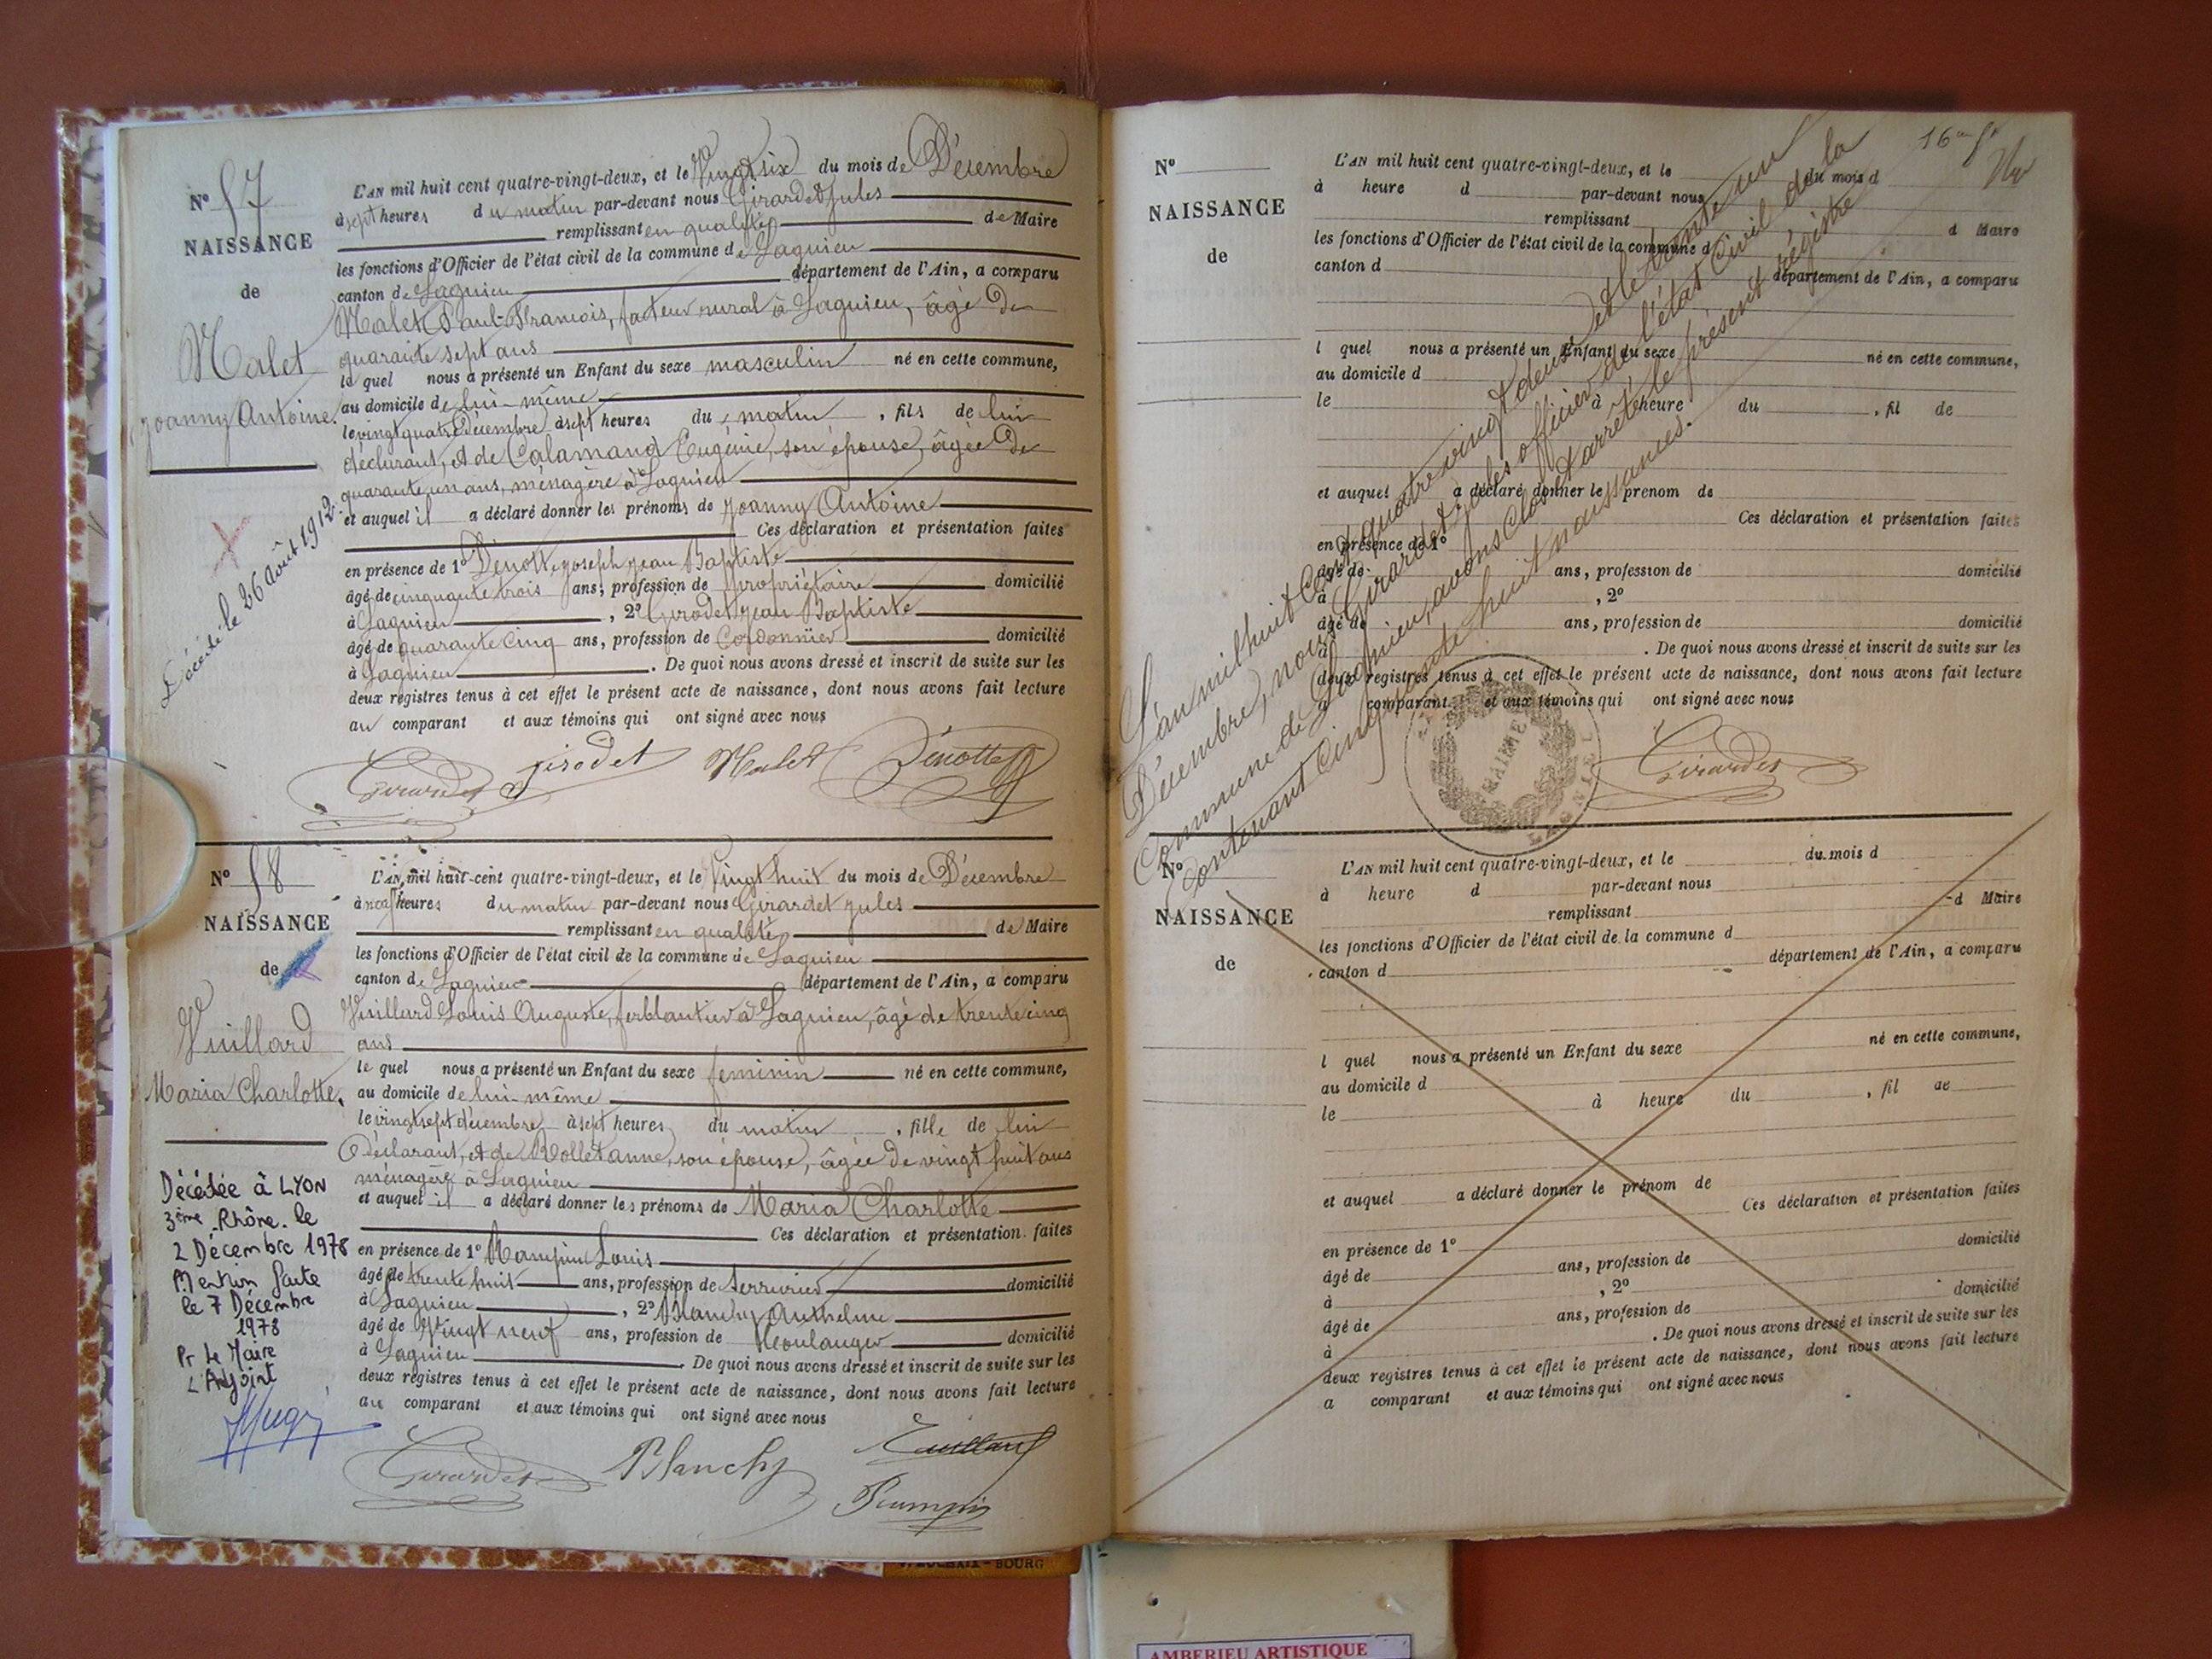 Nº 57
NAISSANCE
de
Malet
Joanny Antoine.
Décédé le 26 août 1912.
L'AN mil huit cent quatre-vingt-deux, et le Vingt six du mois de Décembre
à sept heures du matin par-devant nous Girardet Jules
remplissant en qualité de Maire
les fonctions d'Officier de l'état civil de la commune de Lagnieu
canton de Lagnieu département de l'Ain, a comparu
Malet Paul-François, facteur rural à Lagnieu, âgé de
quarante sept ans
le quel nous a présenté un Enfant du sexe masculin né en cette commune,
au domicile de lui-même
le vingt quatre Décembre à sept heures du matin, fils de lui
déclarant, et de Calamand Eugénie, son épouse, âgée de
quarante un ans, ménagère à Lagnieu
et auquel il a déclaré donner les prénoms de Joanny Antoine
Ces déclaration et présentation faites
en présence de 1º Dénotte Joseph Jean Baptiste
âgé de cinquante trois ans, profession de propriétaire domicilié
à Lagnieu, 2º Girodet Jean Baptiste
âgé de quarante cinq ans, profession de Cordonnier domicilié
à Lagnieu. De quoi nous avons dressé et inscrit de suite sur les
deux registres tenus à cet effet le présent acte de naissance, dont nous avons fait lecture
au comparant et aux témoins qui ont signé avec nous
Girardet girodet Malet Dénotte
Nº 58
NAISSANCE
de
Vuillard
Maria Charlotte.
Décédée à LYON
3ème Rhône. le
2 Décembre 1978
Mention faite
le 7 Décembre
1978
Pr Le Maire
L'Adjoint
L'AN mil huit-cent quatre-vingt-deux, et le Vingt huit du mois de Décembre
à neuf heures du matin par-devant nous Girardet Jules
remplissant en qualité de Maire
les fonctions d'Officier de l'état civil de la commune de Lagnieu
canton de Lagnieu département de l'Ain, a comparu
Vuillard Louis Auguste, ferblantier à Lagnieu, âgé de trente cinq
ans
le quel nous a présenté un Enfant du sexe feminin né en cette commune,
au domicile de lui-même
le vingt sept décembre à sept heures du matin, fille de lui
Déclarant, et de Mollet anne, son épouse, âgée de vingt huit ans
ménagère à Lagnieu
et auquel il a déclaré donner les prénoms de Maria Charlotte
Ces déclaration et présentation faites
en présence de 1º Louis
âgé de trente huit ans, profession de Serrurier domicilié
à Lagnieu, 2º Blanchy Anthelme
âgé de Vingt neuf ans, profession de Boulanger domicilié
à Lagnieu. De quoi nous avons dressé et inscrit de suite sur les
deux registres tenus à cet effet le présent acte de naissance, dont nous avons fait lecture
au comparant et aux témoins qui ont signé avec nous
Girardet Blanchy Vuillard
V. BOURG
16
Nº
NAISSANCE
de
L'AN mil huit cent quatre-vingt-deux, et le du mois d
à heure d par-devant nous
remplissant d Maire
les fonctions d'Officier de l'état civil de la commune d
canton d département de l'Ain, a comparu
l quel nous a présenté un Enfant du sexe né en cette commune,
au domicile d
le à heure du , fil de
et auquel a déclaré donner le prenom de
Ces déclaration et présentation faites
en présence de 1º
âgé de ans, profession de domicilié
à , 2º
âgé de ans, profession de domicilié
à . De quoi nous avons dressé et inscrit de suite sur les
deux registres tenus à cet effet le présent acte de naissance, dont nous avons fait lecture
a comparant et aux témoins qui ont signé avec nous
L'an mil huit Cent quatre vingt deux et le trente un
Décembre, nous Girardet Jules officier de l'état civil de la
Commune de Lagnieu, avons Clos et arrêté le présent régistre
Contenant Cinquante huit naissances.
MAIRIE
Girardet
Nº
NAISSANCE
de
L'AN mil huit cent quatre-vingt-deux, et le du mois d
à heure d par-devant nous
remplissant d Maire
les fonctions d'Officier de l'état civil de la commune d
canton d département de l'Ain, a comparu
l quel nous a présenté un Enfant du sexe né en cette commune,
au domicile d
le à heure du , fil de
et auquel a déclaré donner le prénom de
Ces déclaration et présentation faites
en présence de 1º
âgé de ans, profession de domicilié
à , 2º
âgé de ans, profession de domicilié
à . De quoi nous avons dressé et inscrit de suite sur les
deux registres tenus à cet effet le présent acte de naissance, dont nous avons fait lecture
a comparant et aux témoins qui ont signé avec nous
AMBERIEU ARTISTIQUE